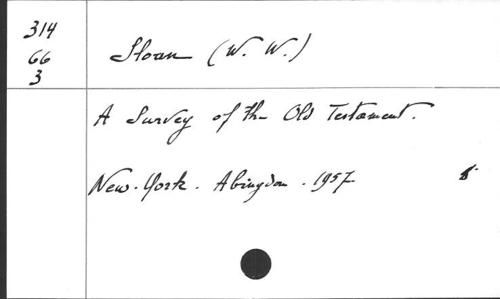 314
66
3
Sloan (W. W.)
A Survey of the Old Testament.
New-York. Abingdon. 1957